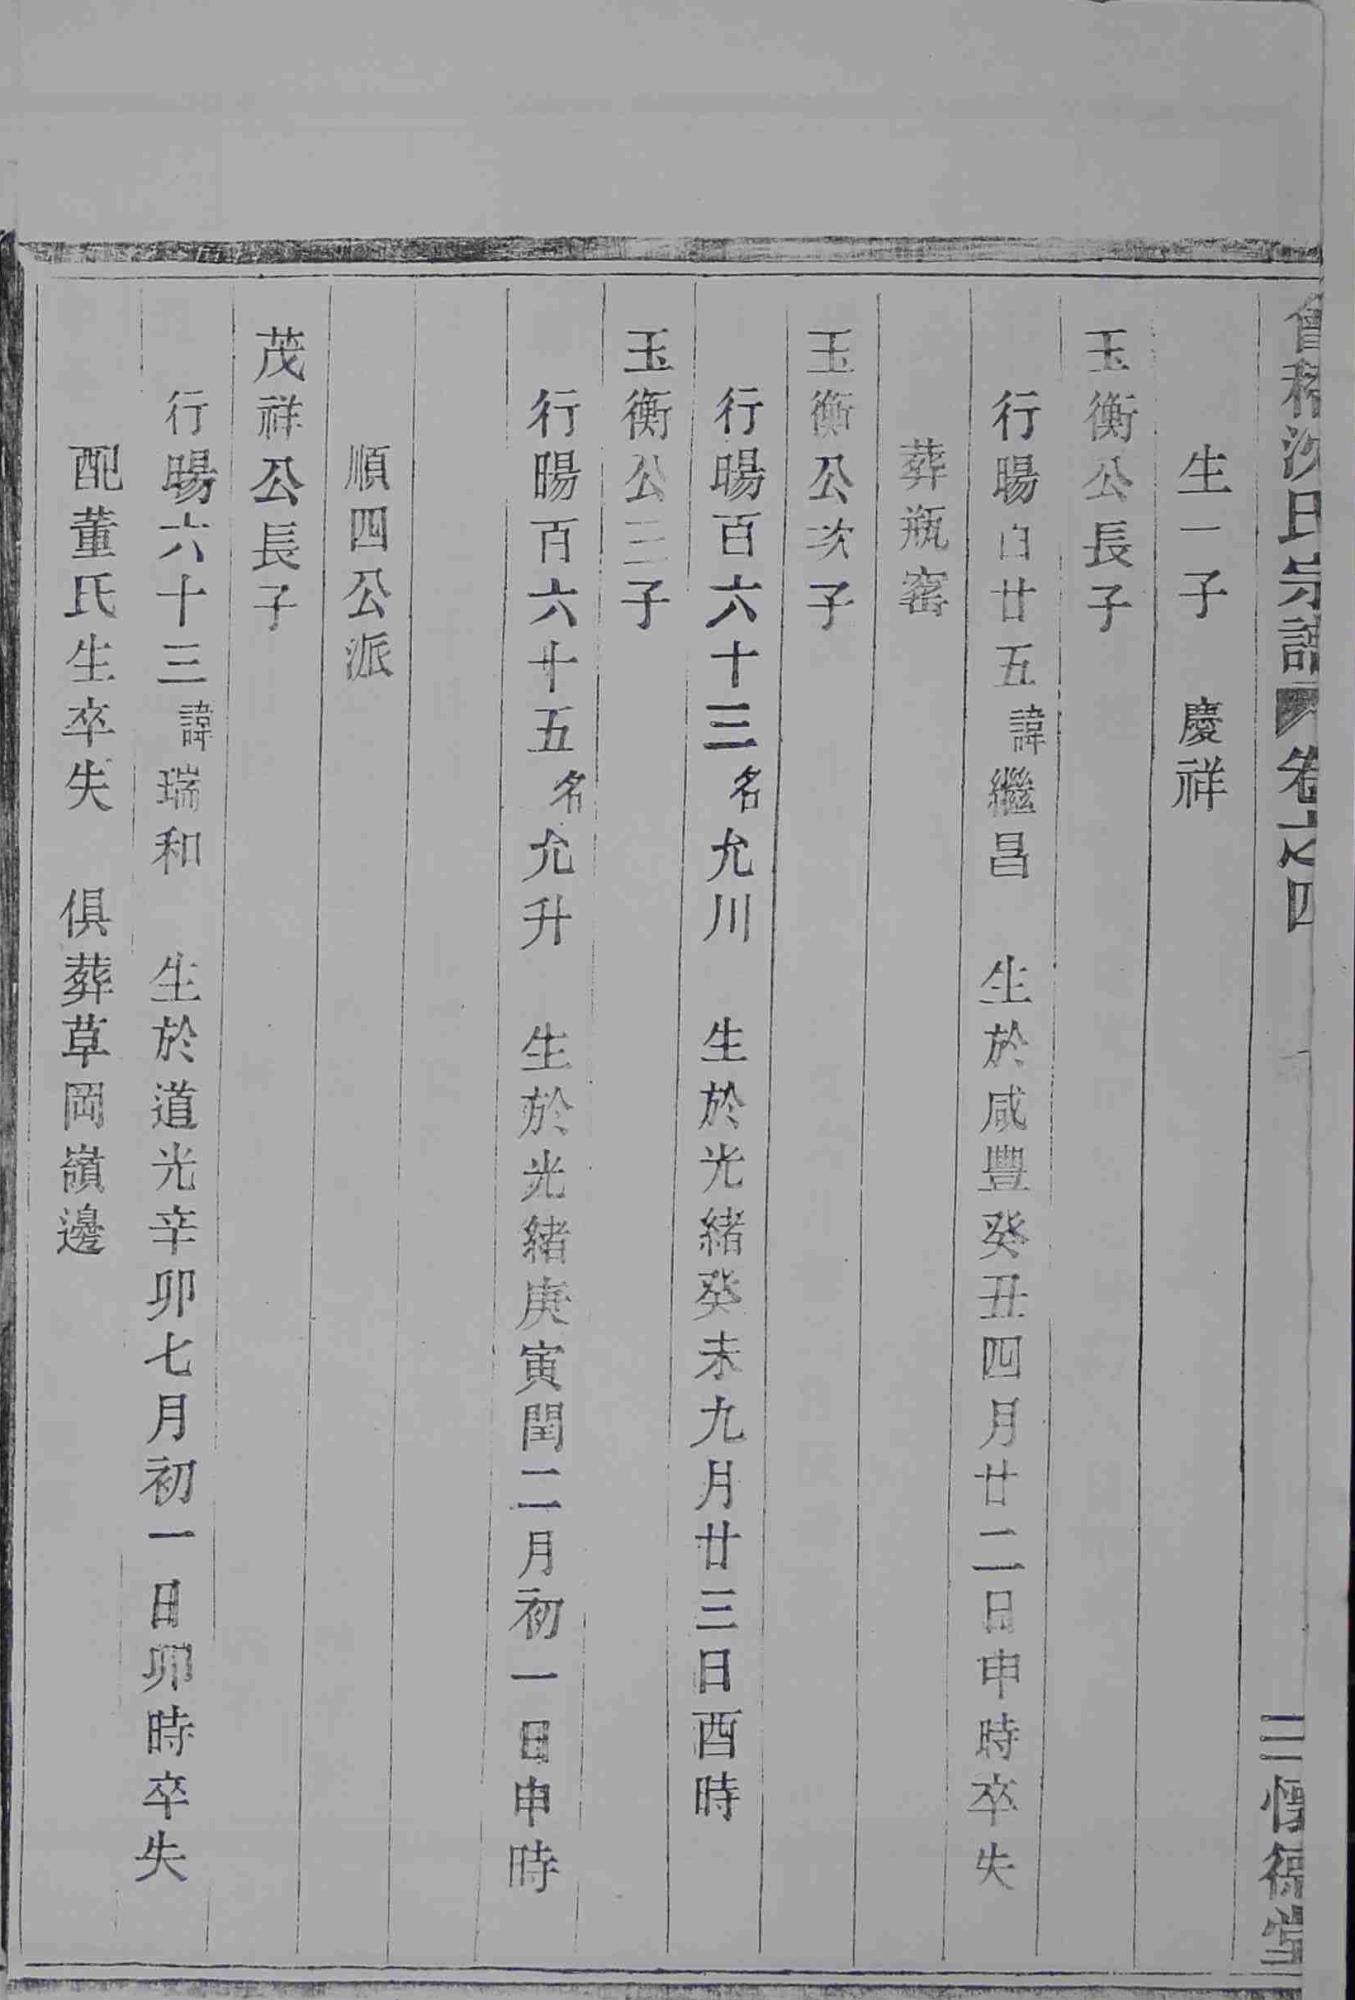 會稽沈氏宗譜 卷之四 三 德堂
生一子 慶祥
玉衡公長子
行暘百廿五諱繼昌 生於咸豐癸丑四月廿二日申時卒失
葬瓶窰
玉衡公次子
行暘百六十三名允川 生於光緒癸未九月廿三日酉時
玉衡公三子
行暘百六十五名允升 生於光緒庚寅閏二月初一日申時
順四公派
茂祥公長子
行暘六十三諱瑞和 生於道光辛卯七月初一日卯時卒失
配董氏生卒失 俱葬草岡嶺邊